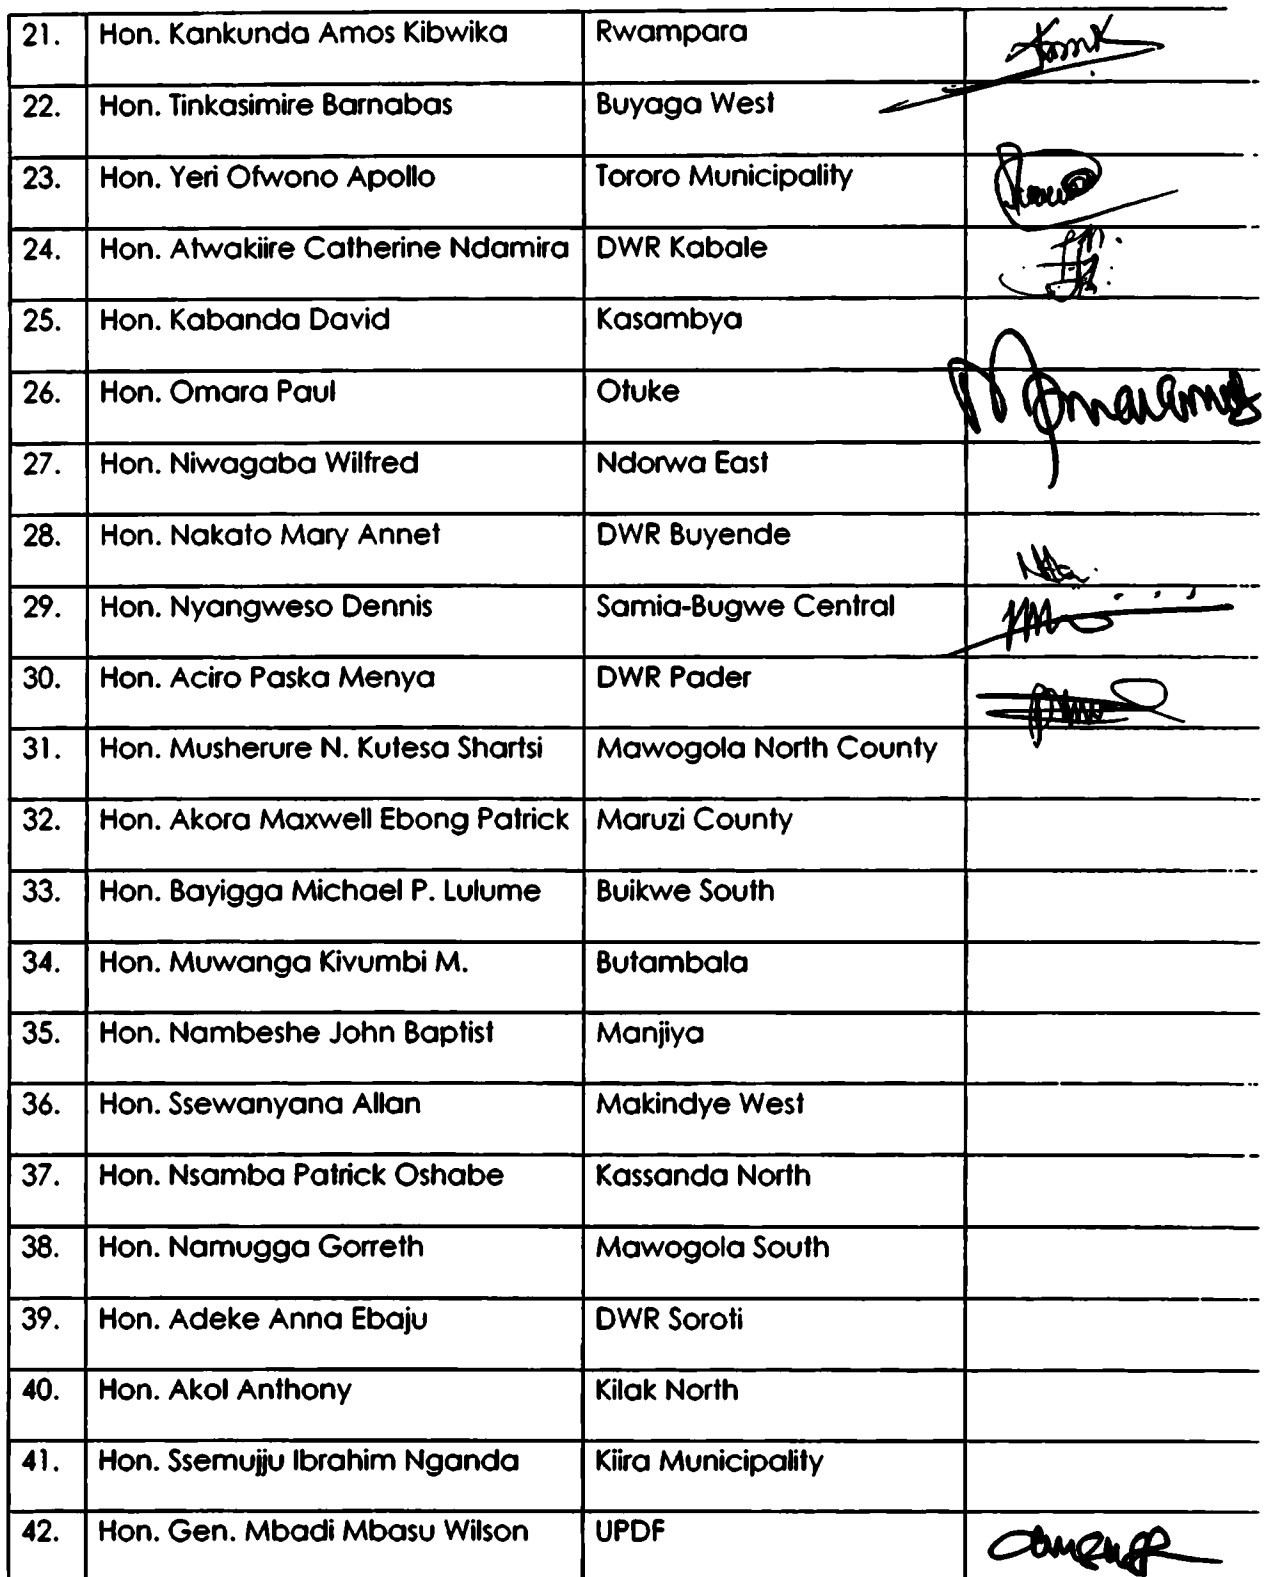 21. Hon. Kankunda Amos Kibwika Rwampara
22. Hon. Tinkasimire Barnabas Buyaga West
23. Hon. Yeri Ofwono Apollo Tororo Municipality
24. Hon. Atwakiire Catherine Ndamira DWR Kabale
25. Hon. Kabanda David Kasambya
26. Hon. Omara Paul Otuke
27. Hon. Niwagaba Wilfred Ndorwa East
28. Hon. Nakato Mary Annet DWR Buyende
29. Hon. Nyangweso Dennis Samia-Bugwe Central
30. Hon. Aciro Paska Menya DWR Pader
31. Hon. Musherure N. Kutesa Shartsi Mawogola North County
32. Hon. Akora Maxwell Ebong Patrick Maruzi County
33. Hon. Bayigga Michael P. Lulume Buikwe South
34. Hon. Muwanga Kivumbi M. Butambala
35. Hon. Nambeshe John Baptist Manjiya
36. Hon. Ssewanyana Allan Makindye West
37. Hon. Nsamba Patrick Oshabe Kassanda North
38. Hon. Namugga Gorreth Mawogola South
39. Hon. Adeke Anna Ebaju DWR Soroti
40. Hon. Akol Anthony Kilak North
41. Hon. Ssemujju Ibrahim Nganda Kiira Municipality
42. Hon. Gen. Mbadi Mbasu Wilson UPDF